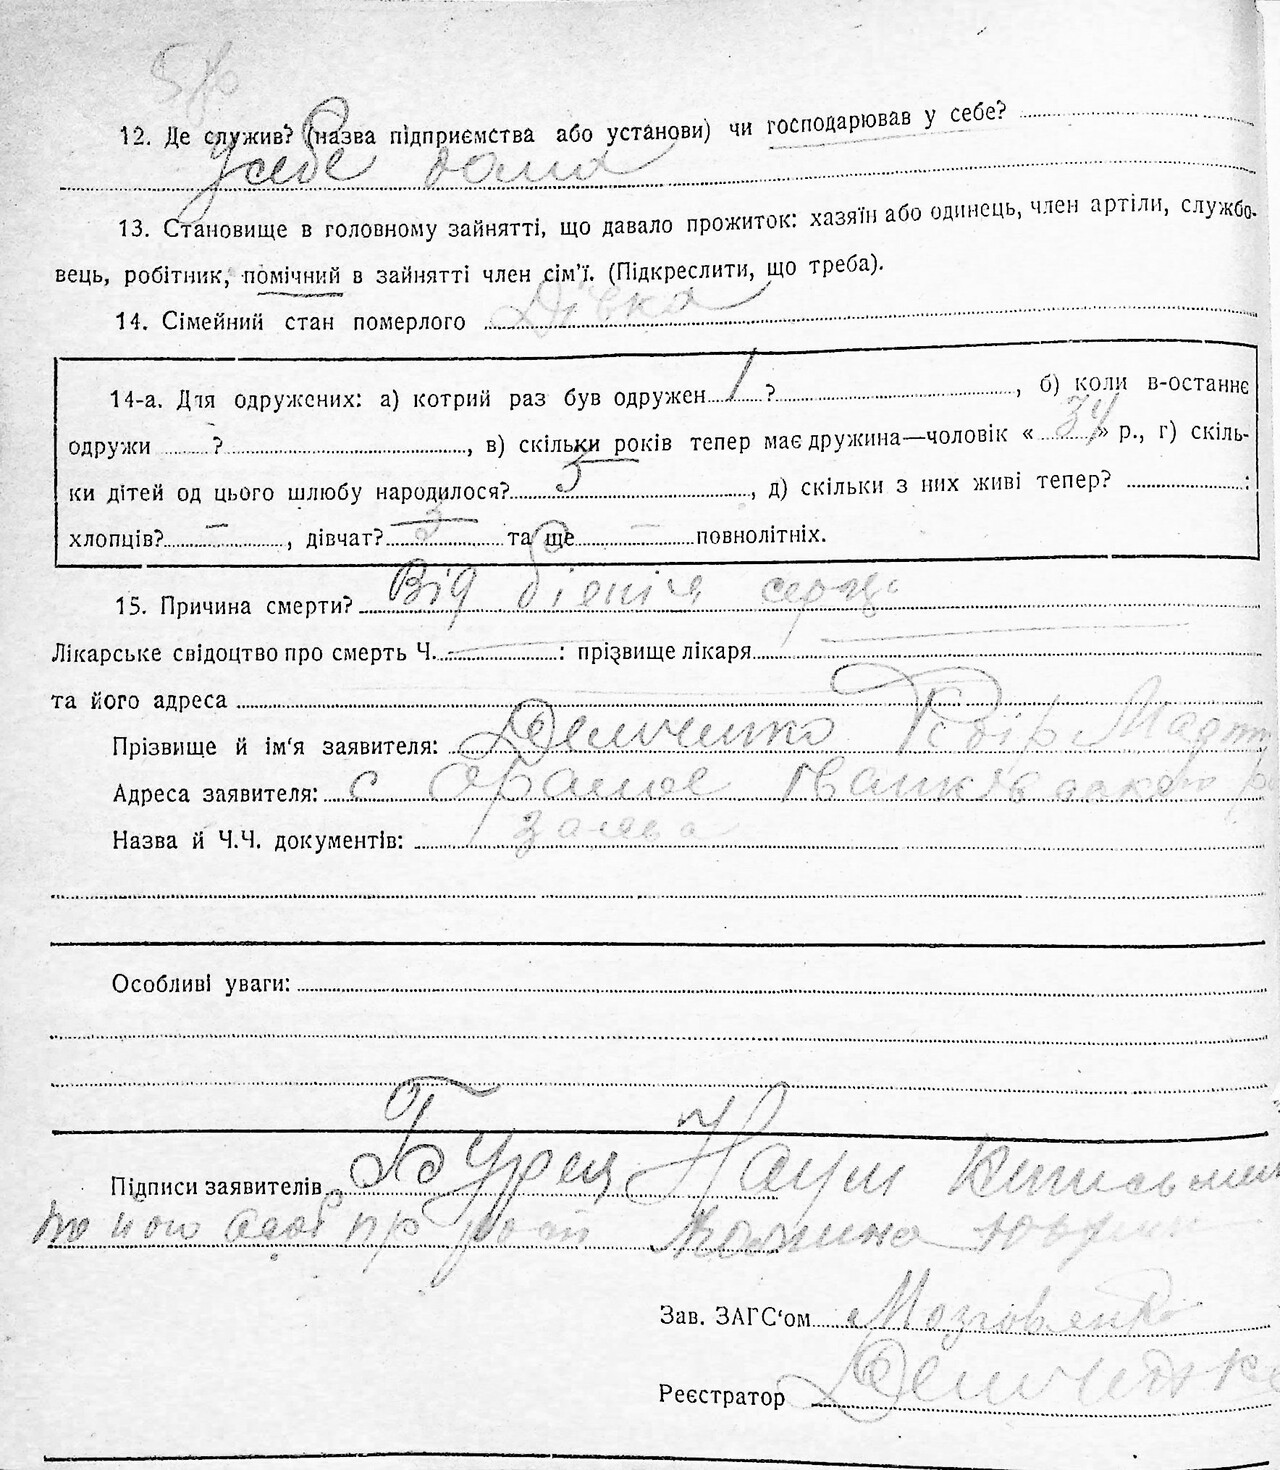 12. Де служив? (назва підприємства або установи) чи господарював у себе?
У себе дома
13. Становище в головному зайнятті, що давало прожиток: хазяїн або одинець, член артіли, службо-
вець, робітник, помічний в зайнятті член сім'ї. (Підкреслити, що треба).
14. Сімейний стан померлого Дівка
14-а. Для одружених: а) котрий раз був одружен 1 ?, б) коли в-останнє
одружи ?, в) скільки років тепер має дружина—чоловік « 34 » р., г) скіль-
ки дітей од цього шлюбу народилося? 3, д) скільки з них живі тепер? :
хлопців? —, дівчат? 3 та ще — повнолітніх.
15. Причина смерти? Від бієнія серця
Лікарське свідоцтво про смерть Ч. — : прізвище лікаря
та його адреса
Прізвище й ім'я заявителя: Демченко
Адреса заявителя: с
Назва й Ч.Ч. документів: заява
Особливі уваги:
Підписи заявителів
Зав. ЗАГС'ом Мозговенко
Реєстратор Демченко